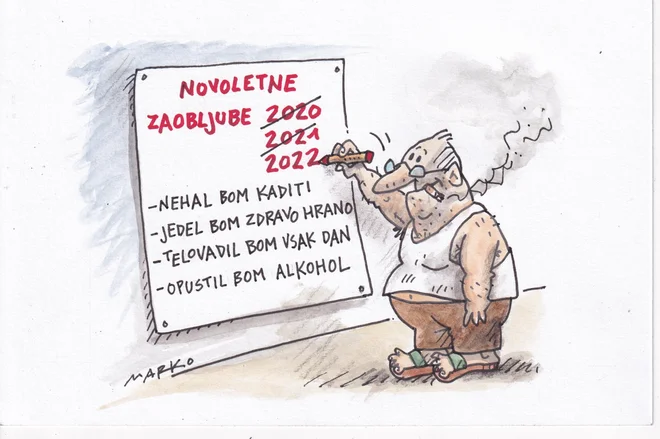 NOVOLETNE
ZAOBLJUBE 2020
2021
2022
-NEHAL BOM KADITI
-JEDEL BOM ZDRAVO HRANO
-TELOVADIL BOM VSAK DAN
-OPUSTIL BOM ALKOHOL
MARKO